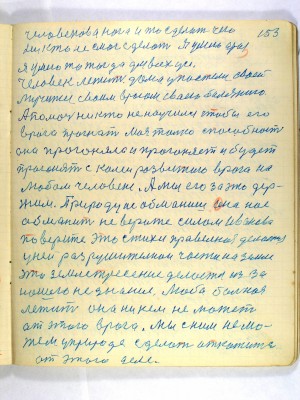 человекова нога и то сделит чего
бы кто не смог сделат
153
я умно то тогда думаю
человек лежит дома у постели своей
мучится своим врагом своею болезнию
А помоч никто не научился чтобы его
врага прогнат Моя только способность
она прогоняла и прогоняет и будет
прогонять с поля развитого врага на
любом человеке. А мы его за это дер-
жим. Природу не обманиш она нас
обманит не верите силам
поверите это стихи правильной делаются
у ней разрушителная части на земле
это землетресение делается из за
нашего не знание. Люба болная
лежить она ни кем не может
от этого врага. Мы с ним не мо-
жем у природе сделат отказатся
от этого дела.